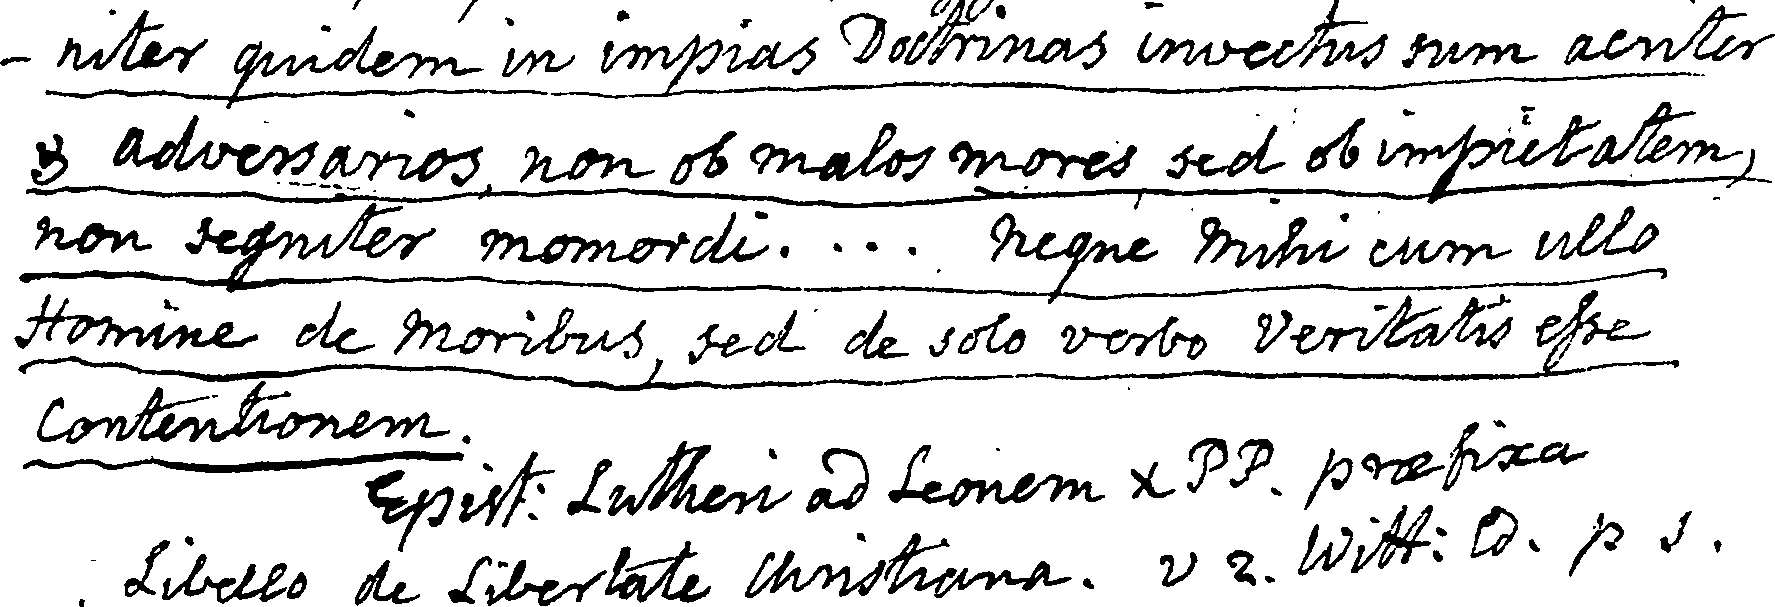 - niter quidem in impias Doctrinas invectus sum acriter
& adversarios, non ob malos mores, sed ob impietatem,
non segniter momordi. . . . Neque Mihi cum ullo
Homine de Moribus, sed de solo verbo Veritatis esse
Contentionem.
Epist: Lutheri ad Leonem X PP. præfixa
Libello de Libertate Christiana. v 2. Witt: Ed. p s.